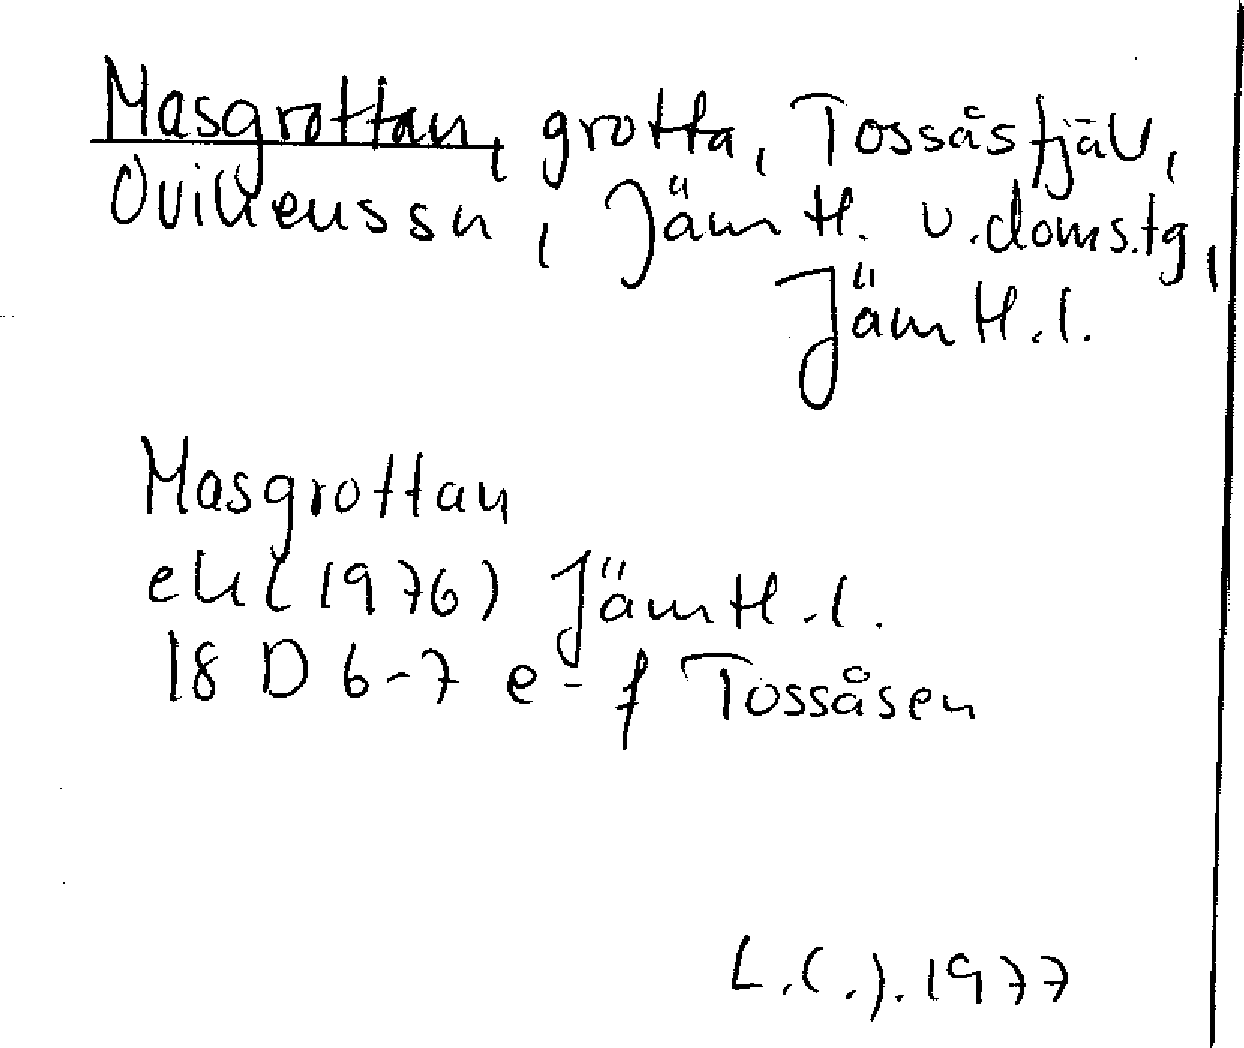 Masgrottan, grotta, Tossåsfjäll,
Ovikens sn, Jämtl. v. doms.tg,
Jämtl. l.
Masgrottan
ek (1976) Jämtl. l.
18 D 6-7 e-f Tossåsen
L.C.J. 1977